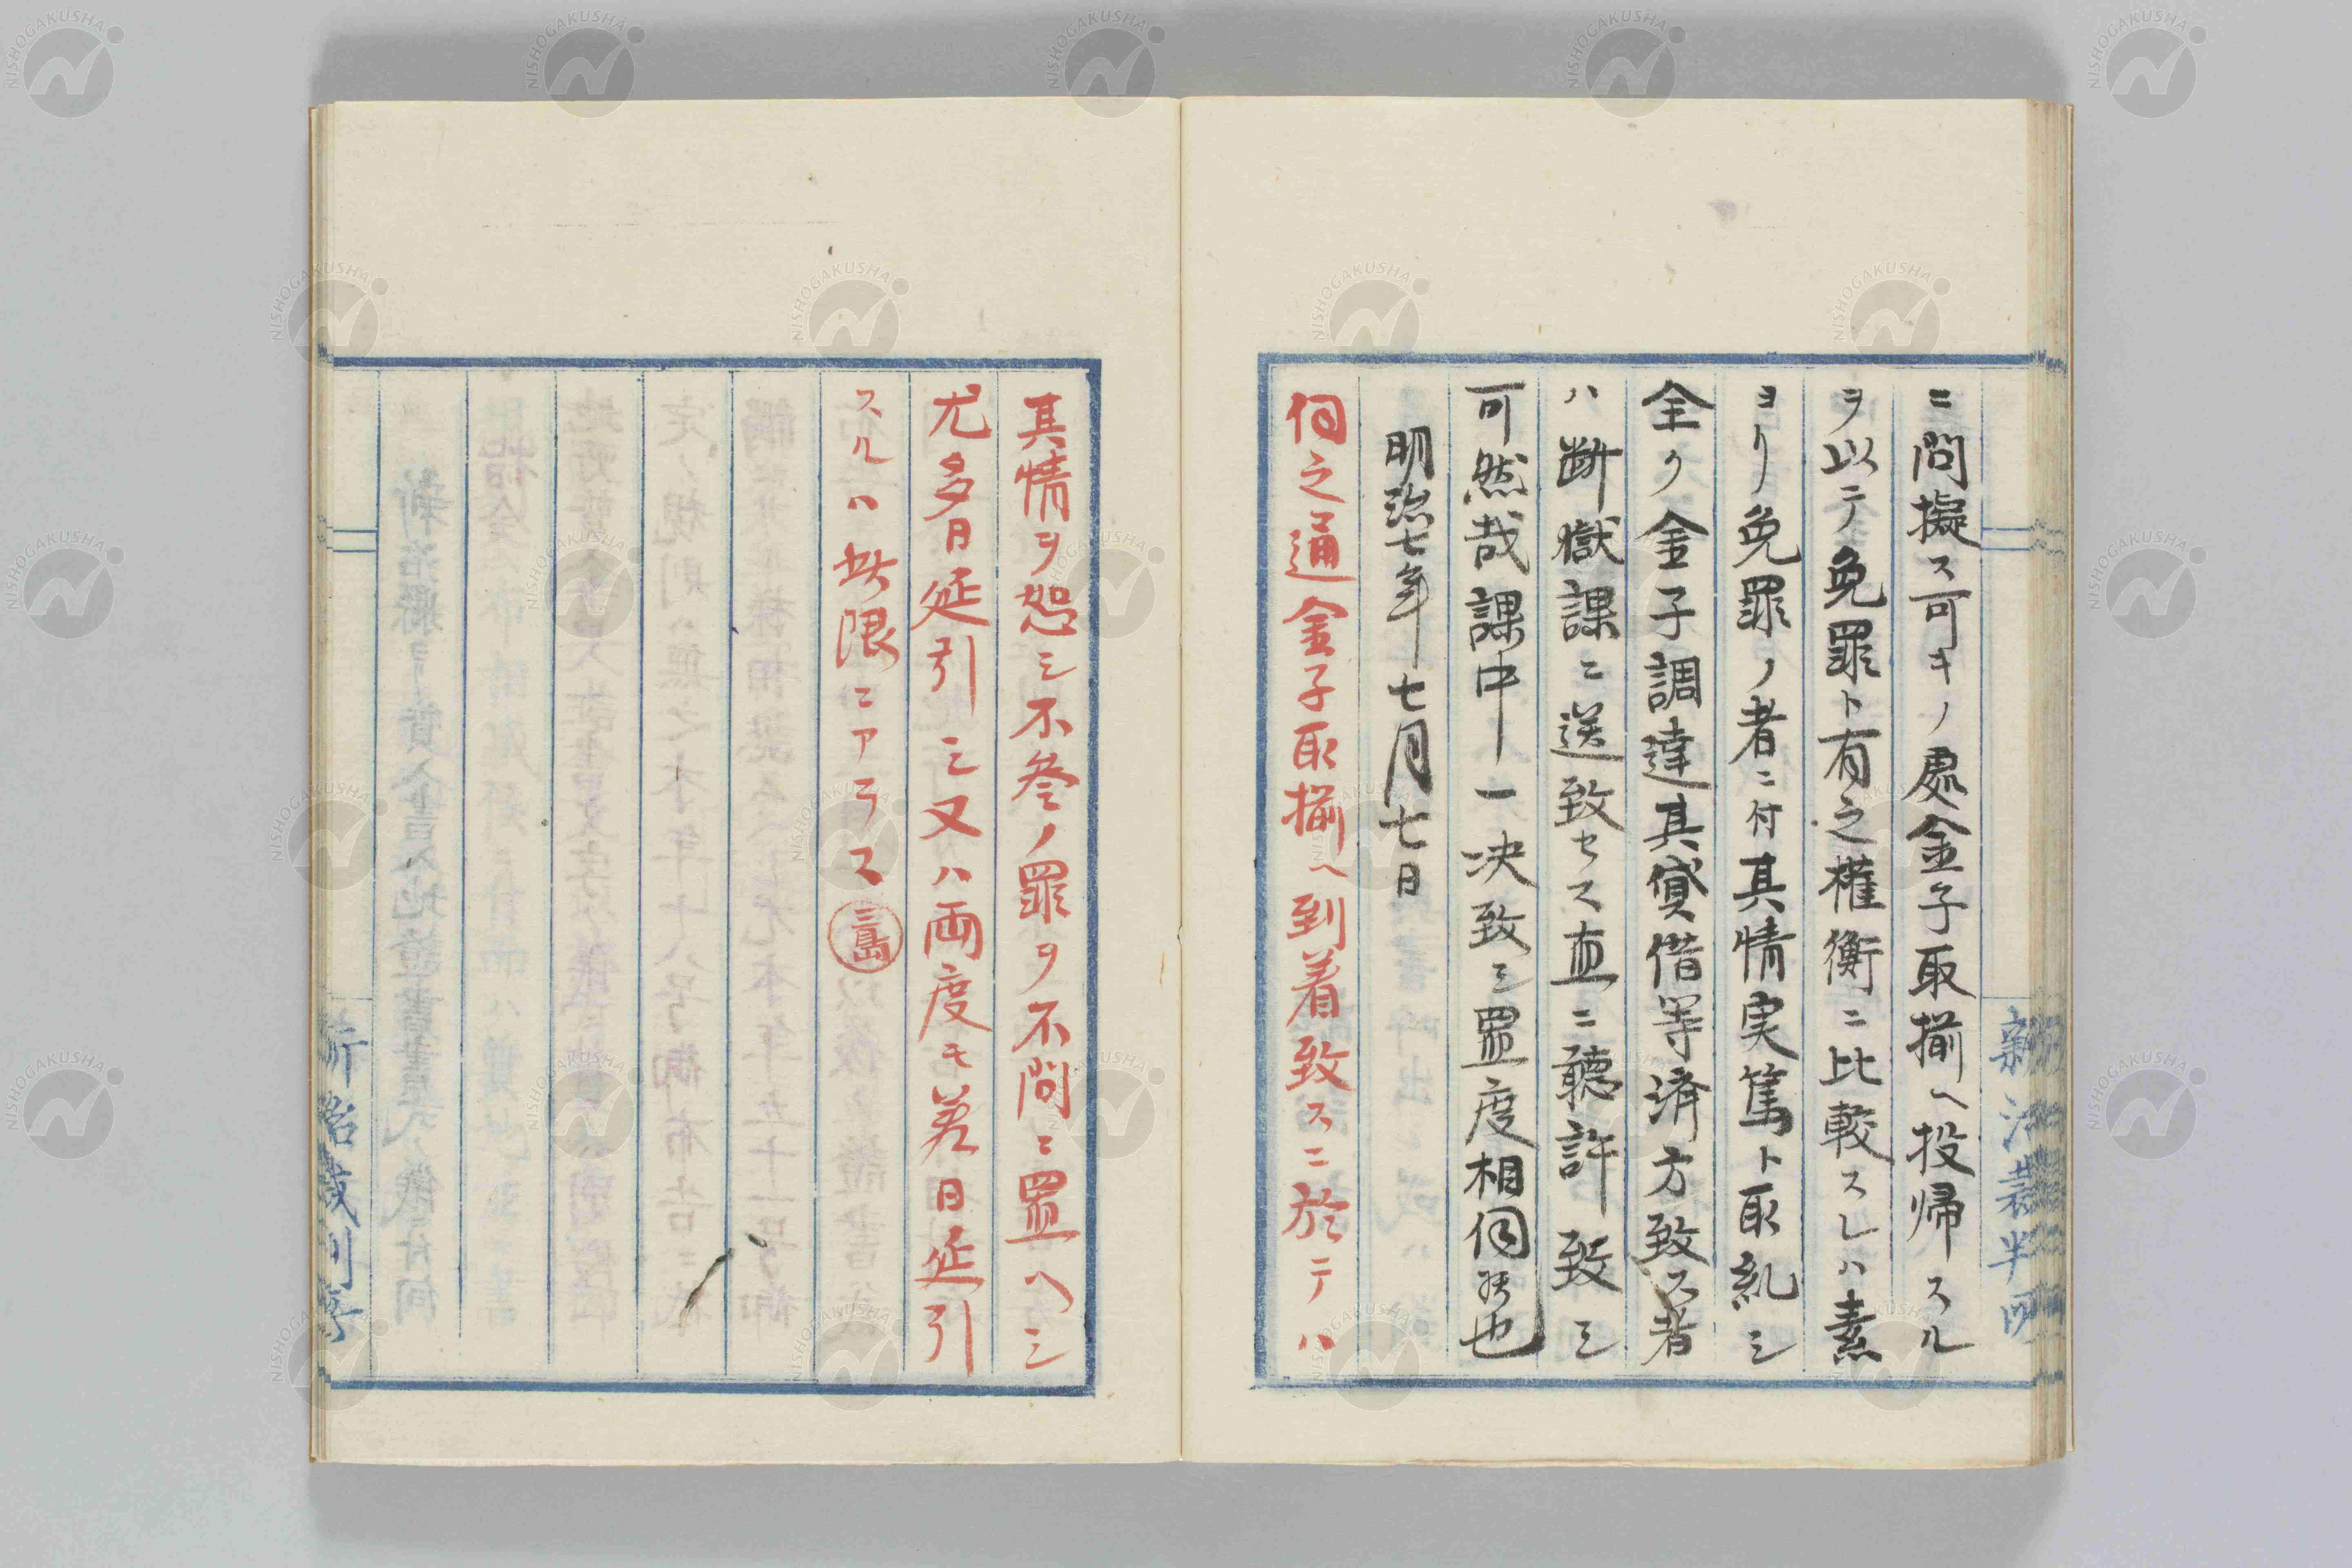 ニ問擬ス可キノ處金子取揃ヘ投帰スル
ヲ以テ免罪ト有之權衡ニ比較スレハ素
ヨリ免罪ノ者ニ付其情実篤ト取糺シ
全ク金子調達其貸借等済方致ス者
ハ断獄課ニ送致セス直ニ聴許致シ
可然哉課中一決致シ置度相伺候也
明治七年七月七日
伺之通金子取揃ヘ到着致スニ於テハ
其情ヲ恕シ不参ノ罪ヲ不問ニ置ヘシ
尤多日延引シ又ハ両度モ差日延引
スルハ此限ニアラス
三島
新治裁判所